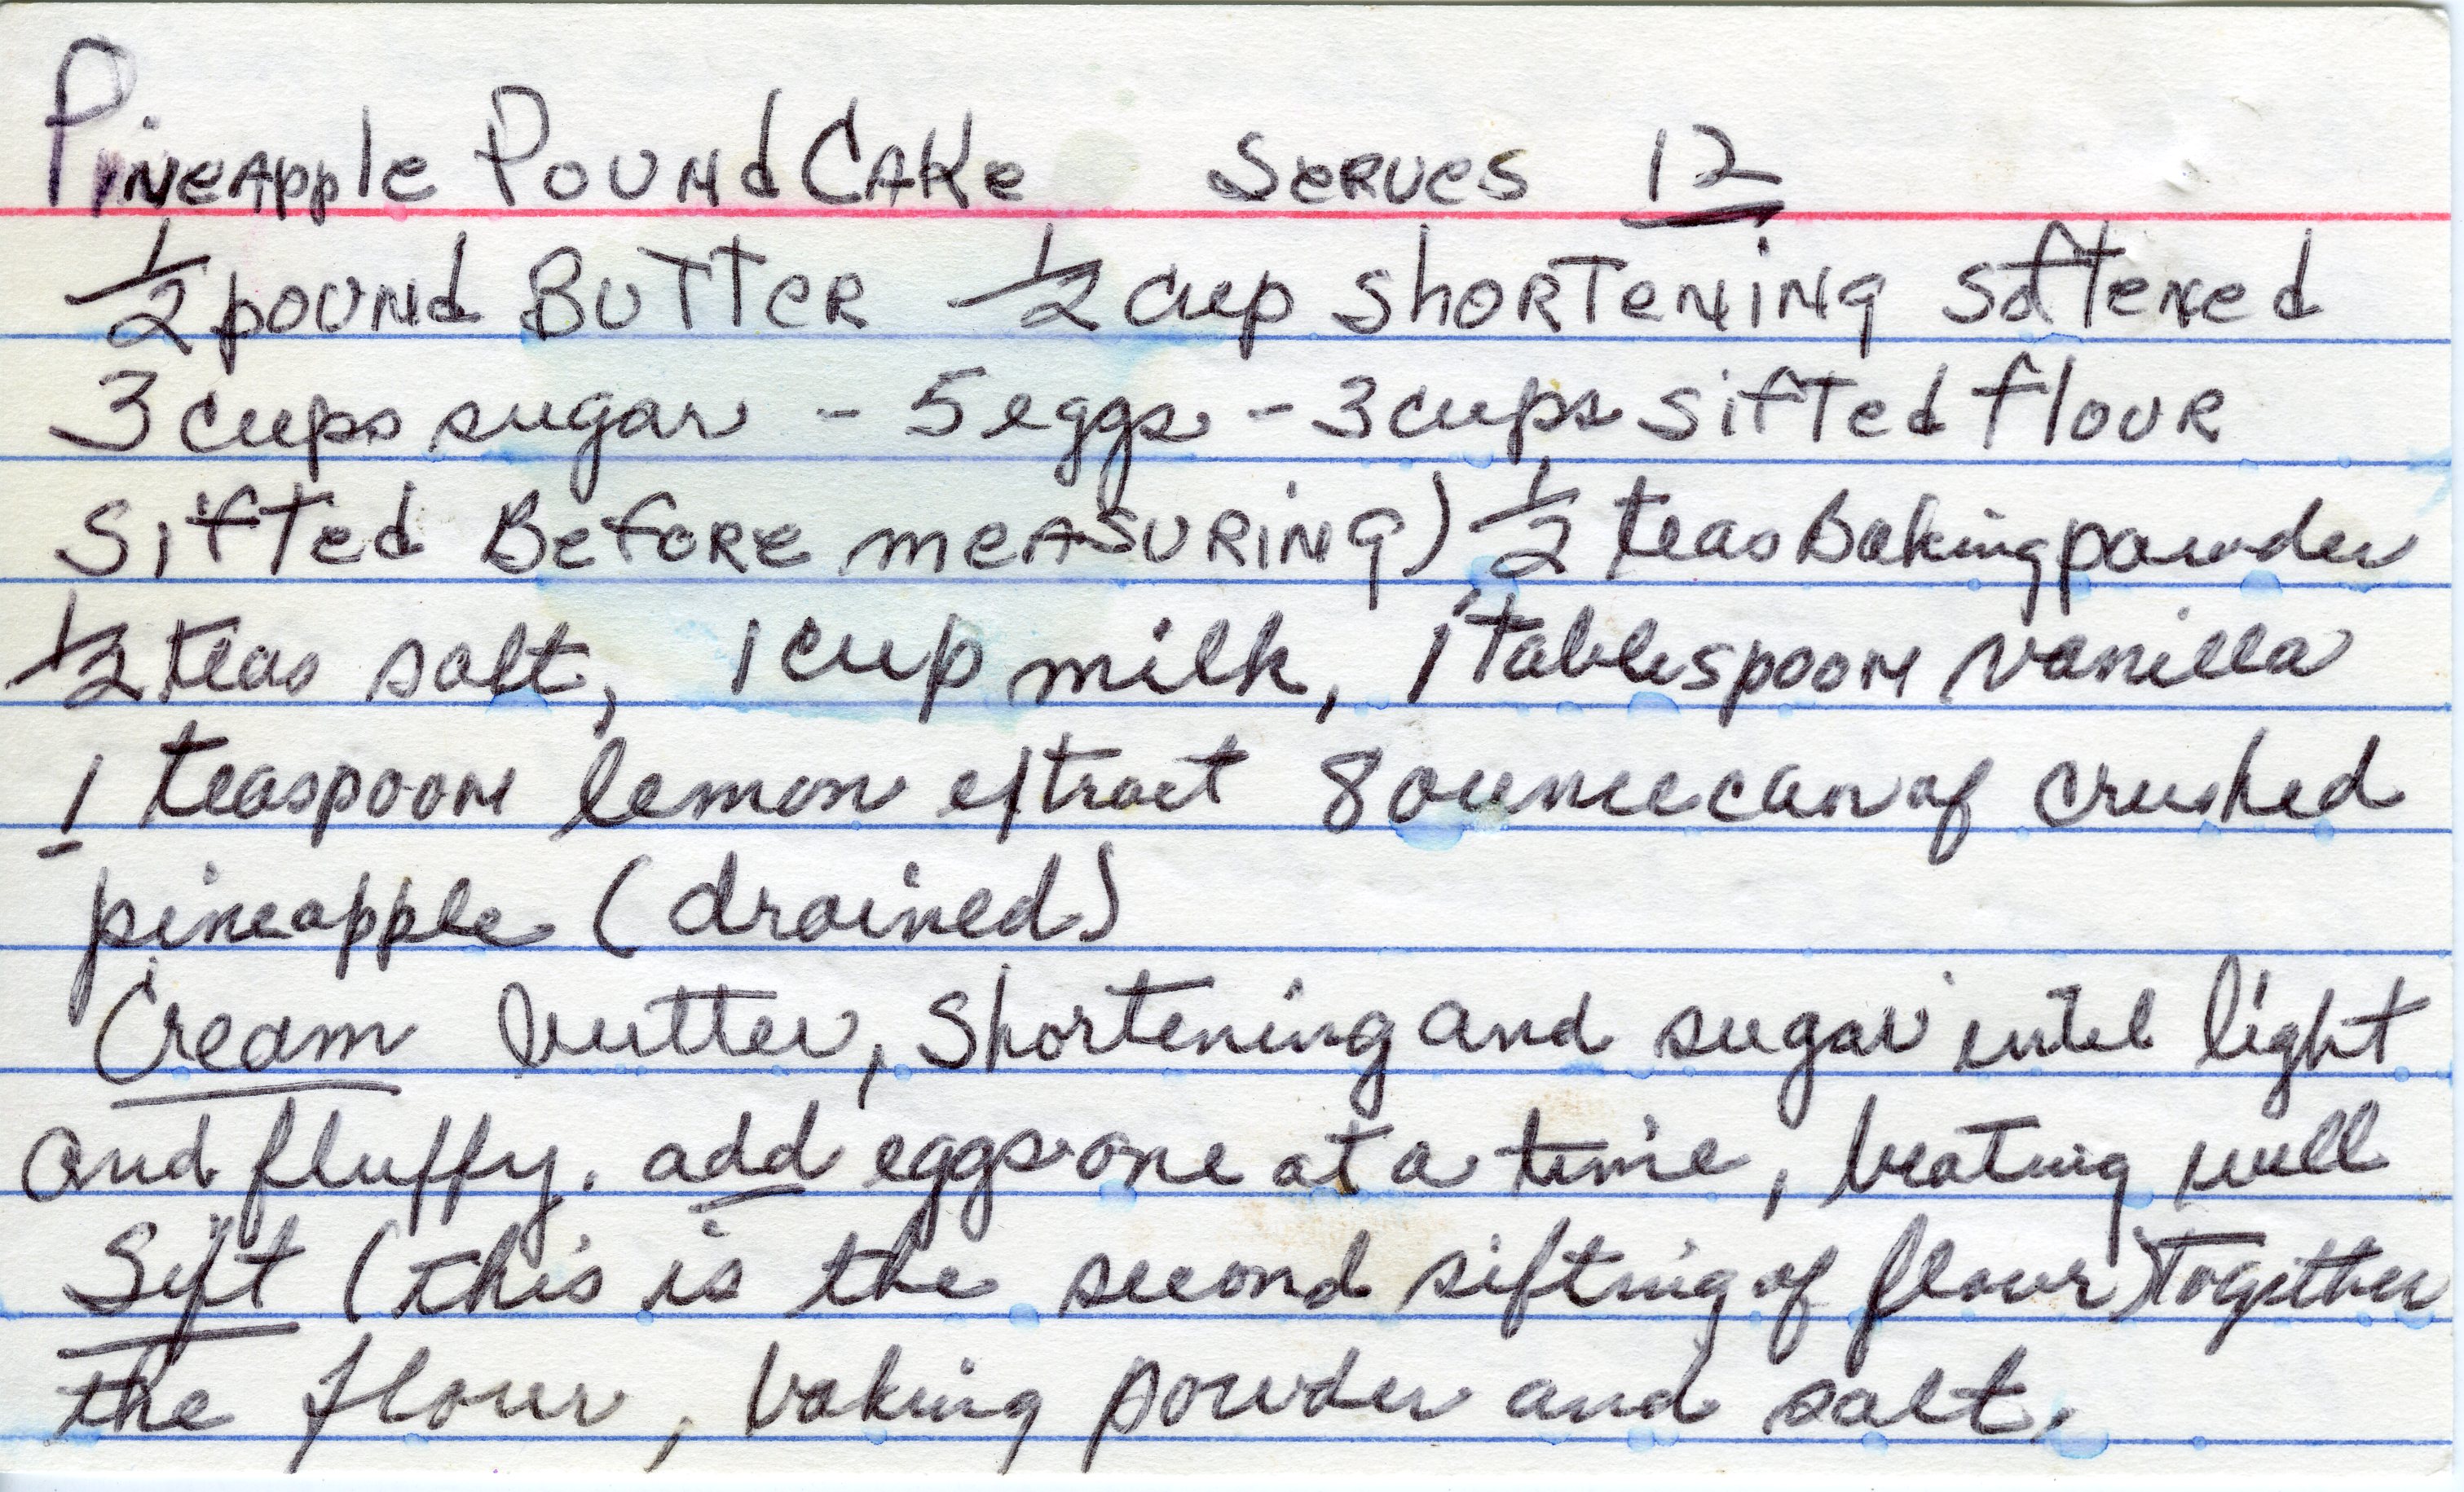 Pineapple Pound Cake Serves 12
1/2 pound Butter 1/2 cup shortening softened
3 cups sugar - 5 eggs - 3 cups sifted flour
Sifted Before measuring) 1/2 teas Baking powder
1/2 teas salt, 1 cup milk, 1 Tablespoon vanilla
1 teaspoon lemon extract 8 ounce can of crushed
pineapple (drained)
Cream butter, shortening and sugar until light
and fluffy. add eggs one at a time, beating well
Sift (this is the second sifting of flour) Together
the flour, baking powder and salt.